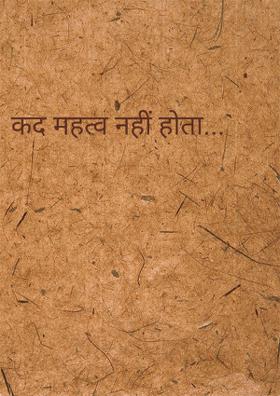 कद महत्व नहीं होता...